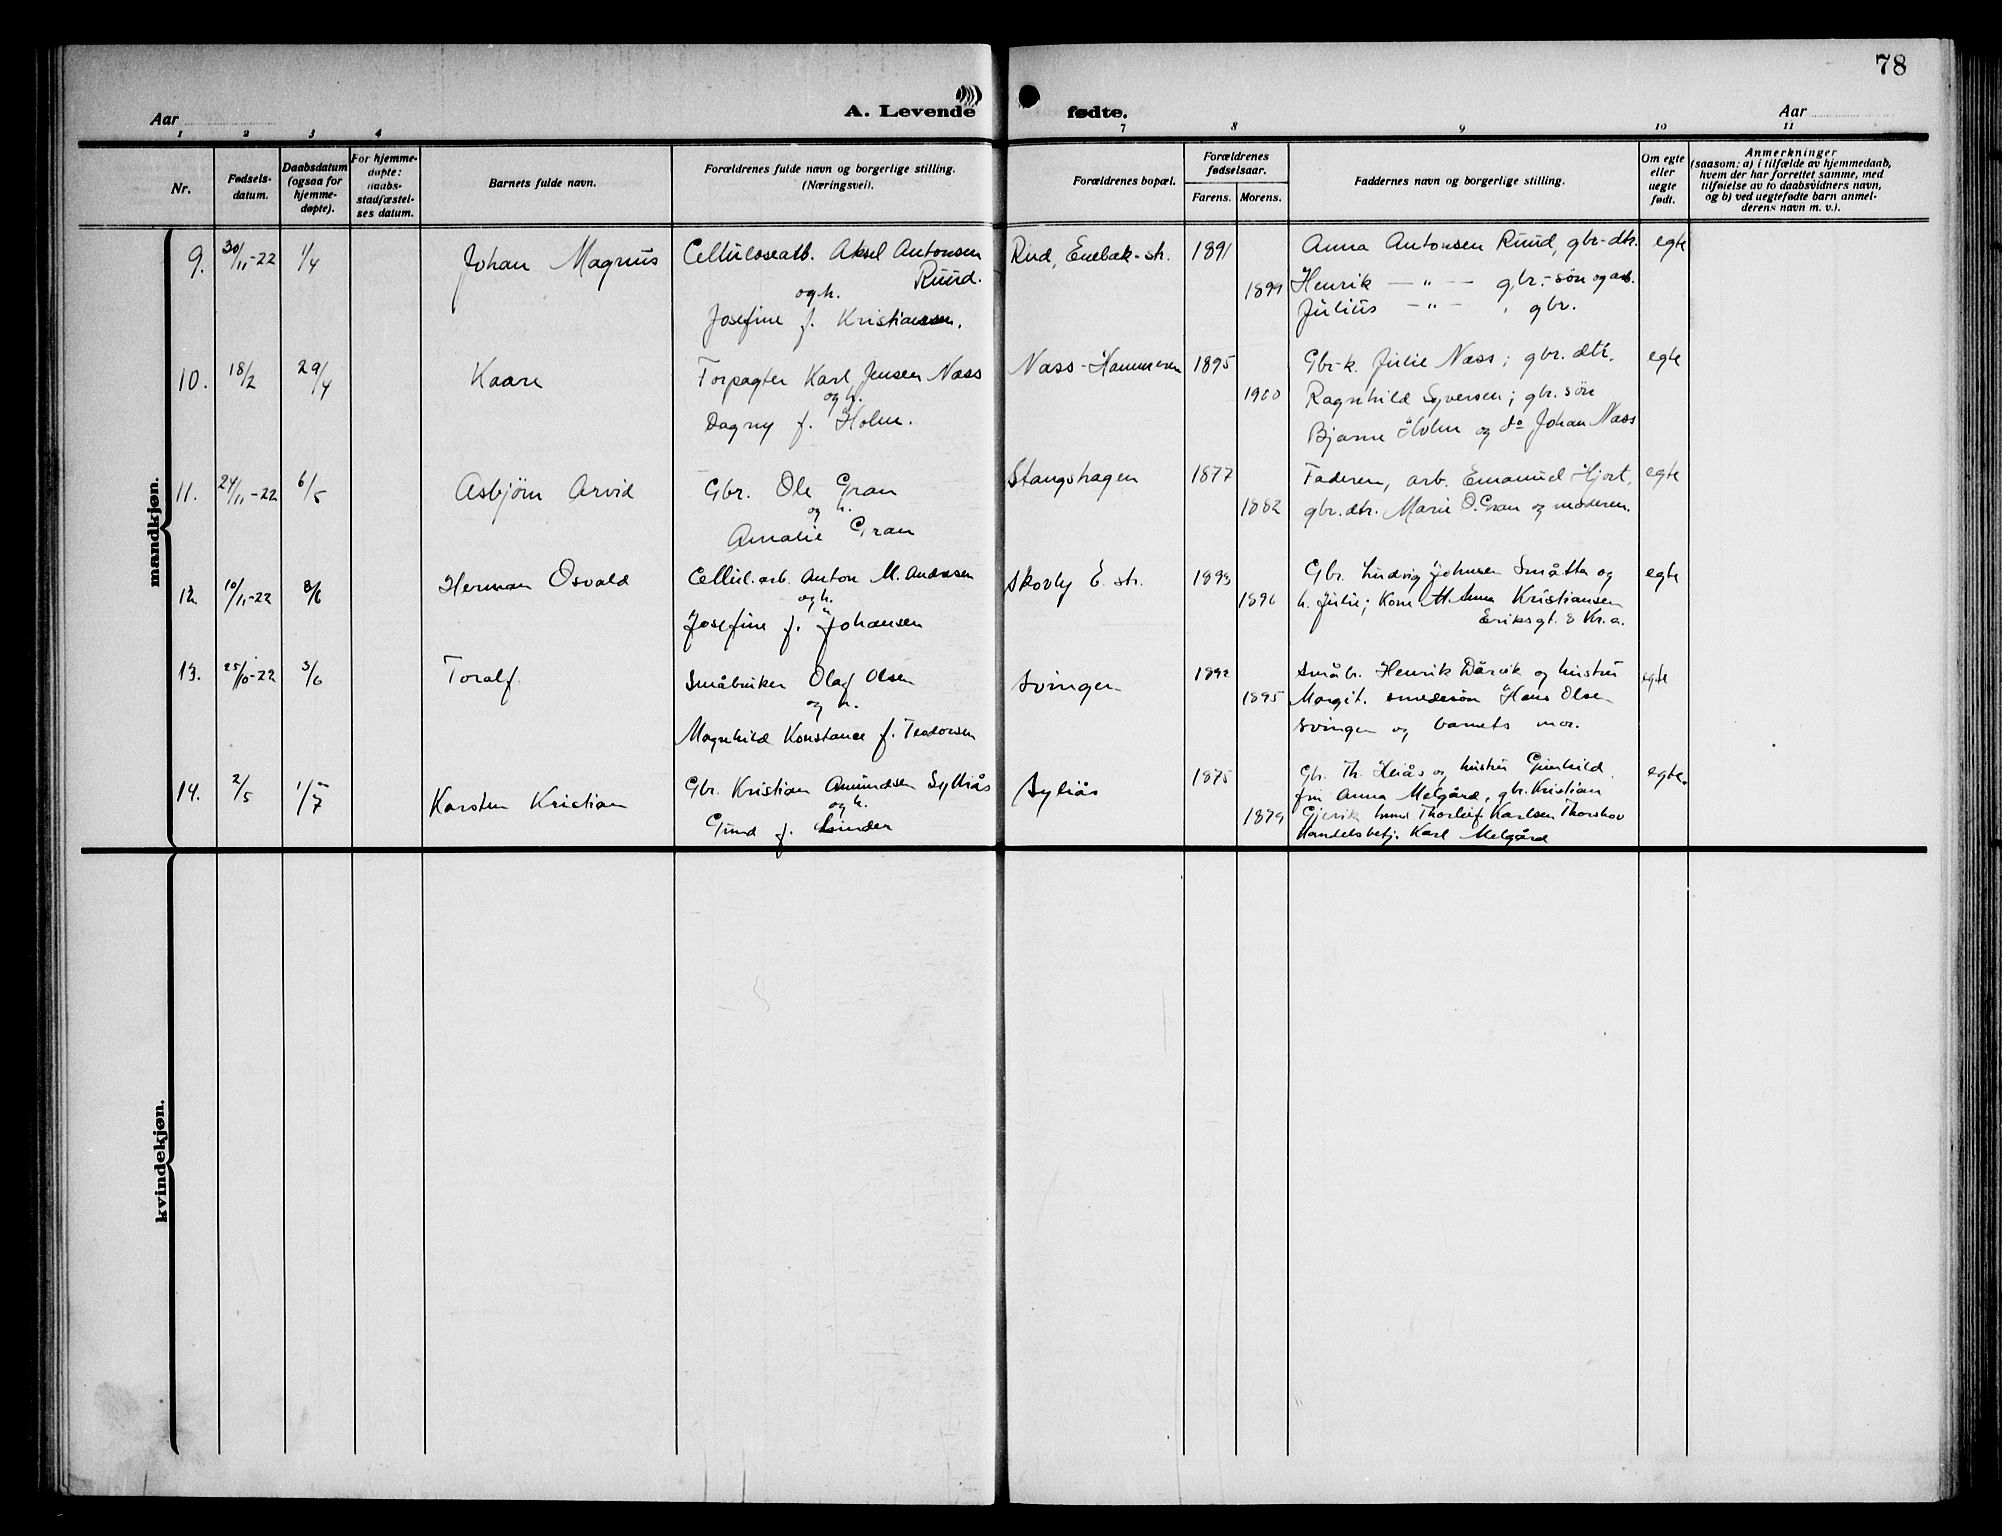 78
Aar
A. Levende fødte.
Aar
1 2 3 4 7 8 9 10 11
Nr.
Fødsels-
datum.
Daabsdatum
(ogsaa for
hjemme-
døpte).
For hjemme-
døpte:
daabs-
stadfæstel-
ses datum.
Barnets fulde navn.
Forældrenes fulde navn og borgerlige stilling.
(Næringsvei).
Forældrenes bopæl.
Forældrenes
fødselsaar.
Farens. Morens.
Faddernes navn og borgerlige stilling.
Om egte
eller
uegte
født.
Anmerkninger
(saasom: a) i tilfælde av hjemmedaab,
hvem der har forrettet samme, med
tilføielse av to daabsvidners navn,
og b) ved uegtefødte barn anmel-
derens navn m. v.).
mandkjøn.
9. 30/11-22 1/4 Johan Magnus Cellulosearb. Aksel Antonsen Rud, Enebak-st. 1891 Anna Antonsen Ruud, gbr-dtr. egte
Ruud.
og h. 1899 Henrik — " — gbr.-søn og arb.
Josefine f. Kristiansen. Julius — " — , gbr.
10. 18/2 29/4 Kaare Forpagter Karl Jensen Næss Næss-Hammeren 1895 Gbr-k. Julie Næss; gbr. dtr. egte
og h. 1900 Ragnhild Syversen; gbr. søn
Dagny f. Holm. Bjarne Holm og do Johan Næss
11. 24/11-22 6/5 Asbjørn Arvid Gbr. Ole Gran Stangshagen 1877 Faderen, arb. Emanuel Hjort, egte
og h. 1882 gbr.dtr. Marie O. Gran og moderen.
Amalie Gran
12. 10/11-22 3/6 Herman Osvald Cellul.arb. Anton M. Andresen Skovly E. st. 1893 Gbr. Ludvig Johnsen Småtta og egte
og h. 1896 h. Julie; Kone M. Anna Kristiansen
Josefine f. Johansen Eriksgt. 8 Kr.a.
13. 25/10-22 3/6 Toralf Småbruker Olaf Olsen Svingen 1892 Småb. Henrik Dårvik og hustru egte
og h. 1895 Margit. smedesøn Hans Olsen
Magnhild Konstance f. Teodorsen Svingen og barnets mor.
14. 2/5 1/7 Karsten Kristian Gbr. Kristian Amundsen Sylliås Syliås 1875 Gbr. Th. Heiås og hustru Gunhild. egte.
og h. frü Anna Melgård, gbr. Kristian
Gund f. Linder 1879 Gjervik Thorleif Karlsen Thorshov
Handelsbetj. Karl Melgård
kvindekjøn.